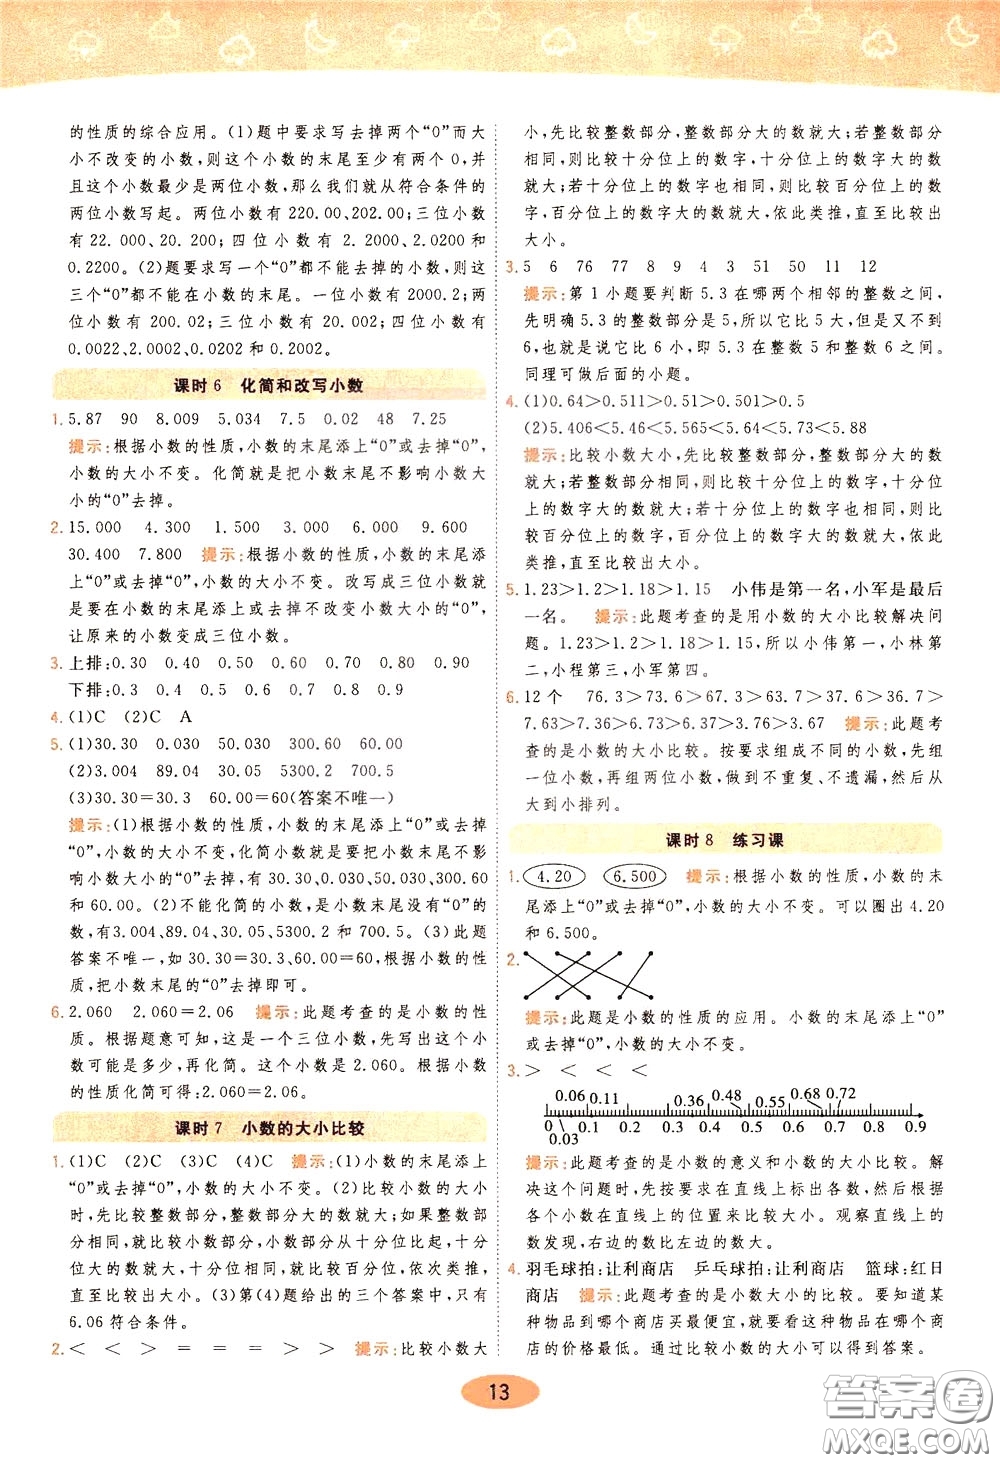 的性质的综合应用。(1)题中要求写去掉两个“0”而大
小不改变的小数，则这个小数的末尾至少有两个 0，并
且这个小数最少是两位小数，那么我们就从符合条件的
两位小数写起。两位小数有 220.00、202.00；三位小数
有 22.000、20.200；四位小数有 2.2000、2.0200 和
0.2200。(2)题要求写一个“0”都不能去掉的小数，则这
三个“0”都不能在小数的末尾。一位小数有 2000.2；两
位小数有 200.02；三位小数有 20.002；四位小数有
0.0022、2.0002、0.0202 和 0.2002。
课时 6 化简和改写小数
1. 5.87 90 8.009 5.034 7.5 0.02 48 7.25
提示：根据小数的性质，小数的末尾添上“0”或去掉“0”，
小数的大小不变。化简就是把小数末尾不影响小数大
小的“0”去掉。
2. 15.000 4.300 1.500 3.000 6.000 9.600
30.400 7.800 提示：根据小数的性质，小数的末尾添
上“0”或去掉“0”，小数的大小不变。改写成三位小数，就
是要在小数的末尾添上或去掉不改变小数大小的“0”，
让原来的小数变成三位小数。
3. 上排：0.30 0.40 0.50 0.60 0.80 0.90
下排：0.3 0.4 0.5 0.6 0.8 0.9
4. (1)C (2)C A
5. (1)30.30 0.030 50.030 300.60 60.00
(2)3.004 89.04 30.05 5300.2 700.5
(3)30.30=30.3 60.00=60(答案不唯一)
提示：(1)根据小数的性质，小数的末尾添上“0”或去掉
“0”，小数的大小不变，化简小数就是要把小数末尾不影
响小数大小的“0”去掉，有 30.30、0.030、50.030、300.60
和 60.00。(2)不能化简的小数，是小数末尾没有“0”的
数，有3.004、89.04、30.05、5300.2 和 700.5。(3)此题
答案不唯一，如 30.30=30.3，60.00=60，根据小数的性
质，把小数末尾的“0”去掉即可。
6. 2.060 2.060=2.06 提示：此题考查的是小数的性
质。根据题意可知，这是一个三位小数，先写出这个小
数可能是多少，再化简。这个小数是 2.060。根据小数
的性质化简可得：2.060=2.06。
课时 7 小数的大小比较
1. (1)C (2)C (3)C (4)C 提示：(1)小数的末尾添上
“0”或去掉“0”，小数的大小不变。(2)比较小数的大小
时，先比较整数部分，整数部分大的数就大；如果整数部
分相同，就比较小数部分，小数部分从十分位比起，十分
位大的数就大，十分位相同，就比较百分位，依次类推，
直至比较出大小。(3)第(4)题给出的三个答案中，只有
6.06 符合条件。
2. < < > = = = > > > 提示：比较小数大
小，先比较整数部分，整数部分大的数就大；若整数部分
相同，则比较十分位上的数字，十分位上的数字大的数
就大；若十分位上的数字也相同，则比较百分位上的数
字，百分位上的数字大的数就大，依此类推，直至比较出
大小。
3. 5 6 76 77 8 9 4 3 51 50 11 12
提示：第 1 小题要判断 5.3 在哪两个相邻的整数之间，
先明确 5.3 的整数部分是 5，所以它比 5 大，但是又不到
6，也就是说它比 6 小，即 5.3 在整数 5 和整数 6 之间。
同理可做后面的小题。
4. (1)0.64>0.511>0.51>0.501>0.5
(2)5.406<5.46<5.565<5.64<5.75<5.88
提示：比较小数大小，先比较整数部分，整数部分大的数
就大；若整数部分相同，则比较十分位上的数字，十分位
上的数字大的数就大；若十分位上的数字也相同，则比
较百分位上的数字，百分位上的数字大的数就大，依此
类推，直至比较出大小。
5. 1.23>1.2>1.18>1.15 小伟是第一名，小军是最后
一名。 提示：此题考查的是用小数的大小比较解决问
题。1.23>1.2>1.18>1.15，所以小伟第一，小林第
二，小程第三，小军第四。
6. 12 个 76.3>73.6>67.3>63.7>37.6>36.7>
7.63>7.36>6.73>6.37>3.76>3.67 提示：此题考
查的是小数的大小比较。按要求组成不同的小数，先组
一位小数，再组两位小数，做到不重复、不遗漏，然后从
大到小排列。
课时 8 练习课
1. 4.20 6.500 提示：根据小数的性质，小数的末
尾添上“0”或去掉“0”，小数的大小不变。可以圈出4.20
和 6.500。
2.
提示：此题是小数的性质的应用。小数的末尾添上“0”
或去掉“0”，小数的大小不变。
3. > < < < <
0.06 0.11 0.36 0.48 0.55 0.68 0.72
0 0.1 0.2 0.3 0.4 0.5 0.6 0.7 0.8 0.9
0.03
提示：此题考查的是小数的意义和小数的大小比较。解
决这个问题时，先按要求在直线上标出各数，然后根据
各个小数在直线上的位置来比较大小。观察直线上的
数发现，右边的数比左边的数大。
4. 羽毛球拍：让利商店 乒乓球拍：让利商店 篮球：红日
商店 提示：此题考查的是小数大小的比较。要知道某
种物品到哪个商店买最便宜，就要看这种物品在哪个商
店的价格最低。通过比较小数的大小可以得到答案。
13
答案圈
MXQE.COM